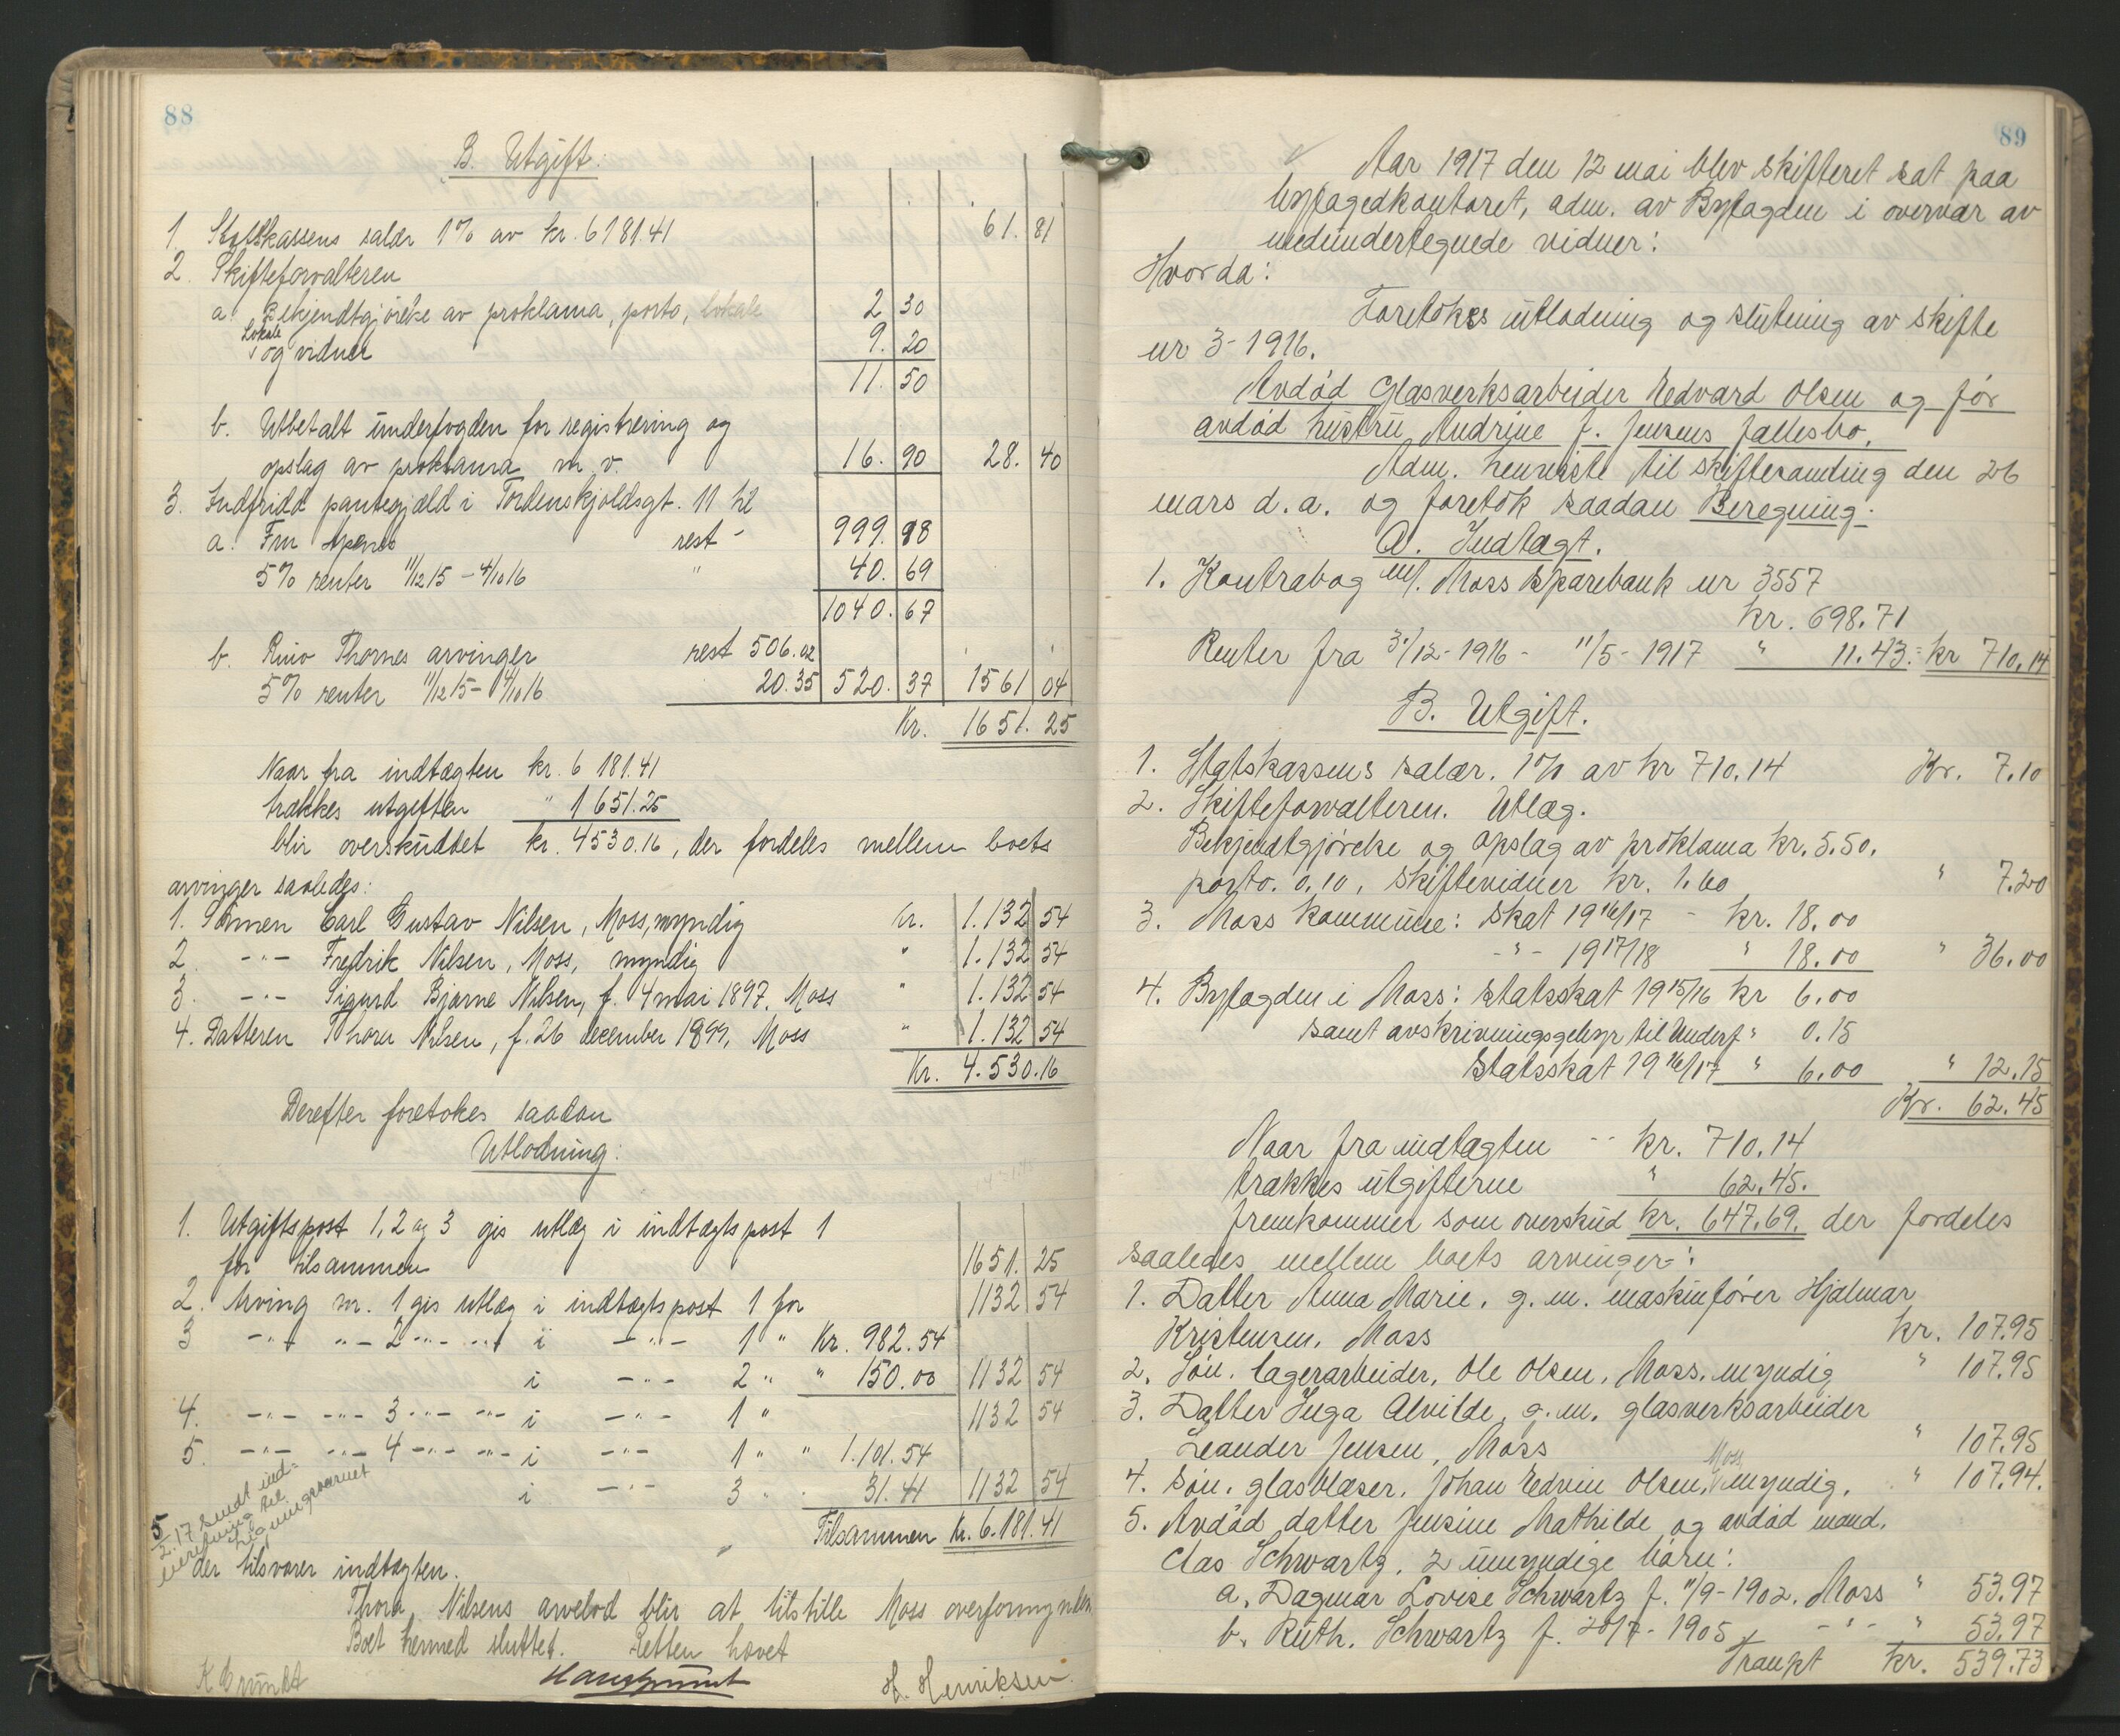 88
B. Utgift:
1. Statskassens salær 1% av kr. 6181.41 61. 81
2. Skifteforvalteren
a. Bekjendtgjörelse av proklama, porto, lokale 2 30
Lokale
og vidner 9. 20
11. 50
b. Utbetalt underfogden for registrering og
opslag av proklama m. v. 16. 90 28. 40
3. Indfridd pantegjæld i Tordenskjoldsgt. 11 til
a. Fru rest - 999. 98
5% renter 11/12 15 - 4/10 16 " 40. 69
1040. 67
b. Thornes arvinger rest 506.02
5% renter 11/12 15 - 4/10 16 20.35 520. 37 1561 04
Kr. 1651. 25
Naar fra indtægten kr. 6 181.41
trækkes utgiften " 1651.25
blir overskuddet kr. 4530.16, der fordeles mellem boets
arvinger saaledes:
1. Sönnen Carl Gustav Nilsen, Moss, myndig kr. 1.132 54
2. -"- Fredrik Nilsen, Moss, myndig " 1.132 54
3. -"- Sigurd Bjarne Nilsen, f. 4 mai 1897. Moss " 1.132 54
4. Datteren Thora Nilsen, f. 26 december 1899, Moss " 1.132 54
Kr. 4.530.16
Derefter foretokes saadan
Utlodning:
1. Utgiftspost 1, 2 og 3 gis utlæg i indtægtspost 1
for tilsammen 1651. 25
2. Arving nr. 1 gis utlæg i indtægtspost 1 for 1132 54
3 -"- -"- 2 -"- -"- i -"- 1 " Kr. 982.54
i -"- 2 " " 150.00 1132 54
4. -"- -"- 3 -"- -"- i -"- 1 " 1132 54
5. -"- -"- 4 -"- -"- i -"- 1 " " 1.101.54
i -"- 3 " " 31.41 1132 54
Tilsammen Kr. 6.181.41
5/2.17 sendt ind-
beretning til
ligningsvæsnet
der tilsvarer indtægten.
Thora Nilsens arvelod blir at tilstille Moss overformynderi
Boet hermed sluttet. Retten hævet
K Grundt Hansgrundt H. Henriksen
89
Aar 1917 den 12 mai blev skifteret sat paa
byfogedkontoret, adm. av Byfogden i overvær av
medundertegnede vidner:
Hvorda:
Foretokes utlodning og slutning av skifte
nr 3-1916.
Avdød Glasverksarbeider Edvard Olsen og før
avdød hustru Andrine f. Jensens fællesbo.
Adm. henviste til skiftesamling den 26
mars d. a. og foretok saadan Beregning:
A. Indtægt.
1. Kontrabog m/. Moss Sparebank nr 3557
kr. 698.71
Renter fra 31/12-1916 - 11/5-1917 " 11.43 = kr 710.14
B. Utgift.
1. Statskassens salær. 1% av kr 710.14 Kr. 7.10
2. Skifteforvalteren. Utlæg.
Bekjendtgjørelse og opslag av proklama kr. 5.50.
porto. 0.10, skiftevidner kr. 1.60 " 7.20
3. Moss kommune: skat 1916/17 - kr. 18.00
-"- 1917/18 " 18.00 " 36.00
4. Byfogden i Moss: statsskat 1915/16 kr 6.00
samt avskrivningsgebyr til Underf " 0.15
Statsskat 1916/17 " 6.00 " 12.15
Kr. 62.45
Naar fra indtægten -- kr. 710.14
trækkes utgifterne " 62.45.
fremkommer som overskud kr. 647.69. der fordeles
saaledes mellem boets arvinger:
1. Datter Anna Marie. g. m. maskinfører Hjalmar
Kristensen, Moss kr. 107.95
2. Søn. lagerarbeider, Ole Olsen, Moss. myndig " 107.95
3. Datter Inga Alvilde, g. m. glasverksarbeider
Leander Jensen, Moss " 107.95
4. Søn. glasblæser. Johan Edvin Olsen, Moss, myndig. " 107.94.
5. Avdød datter Jensine Mathilde og avdød mand,
Clas Schwartz, 2 umyndige børn:
a. Dagmar Lovise Schwartz f. 11/9-1902. Moss " 53.97
b. Ruth. Schwartz f. 20/7-1905 -"- " 53.97
Transpt kr. 539.73